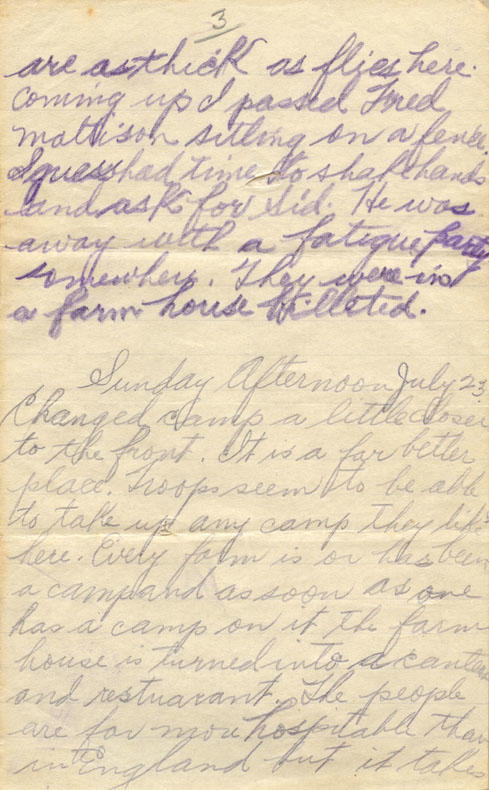 3
are as thick as flies here.
Coming up I passed Fred
Mattison sitting on a fence.
I guess had time to shake hands
and ask for Sid. He was
away with a fatigue party
somewhere. They were in
a farm house billeted.
Sunday Afternoon July 23,
Changed camp a little closer
to the front. It is a far better
place. Troops seem to be able
to take up any camp they like
here. Every farm is or has been
a camp and as soon as one
has a camp on it the farm
house is turned into a canteen
and restuarant. The people
are far more hospitable than
in England but it takes